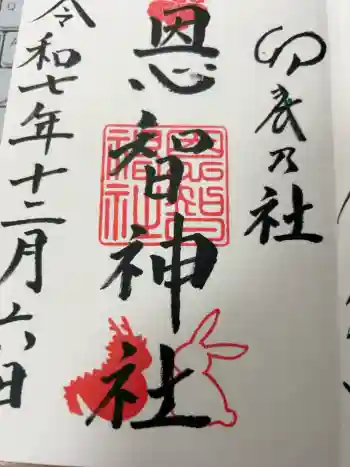 卯辰乃社
恩智神社
恩智神社
令和七年十二月六日